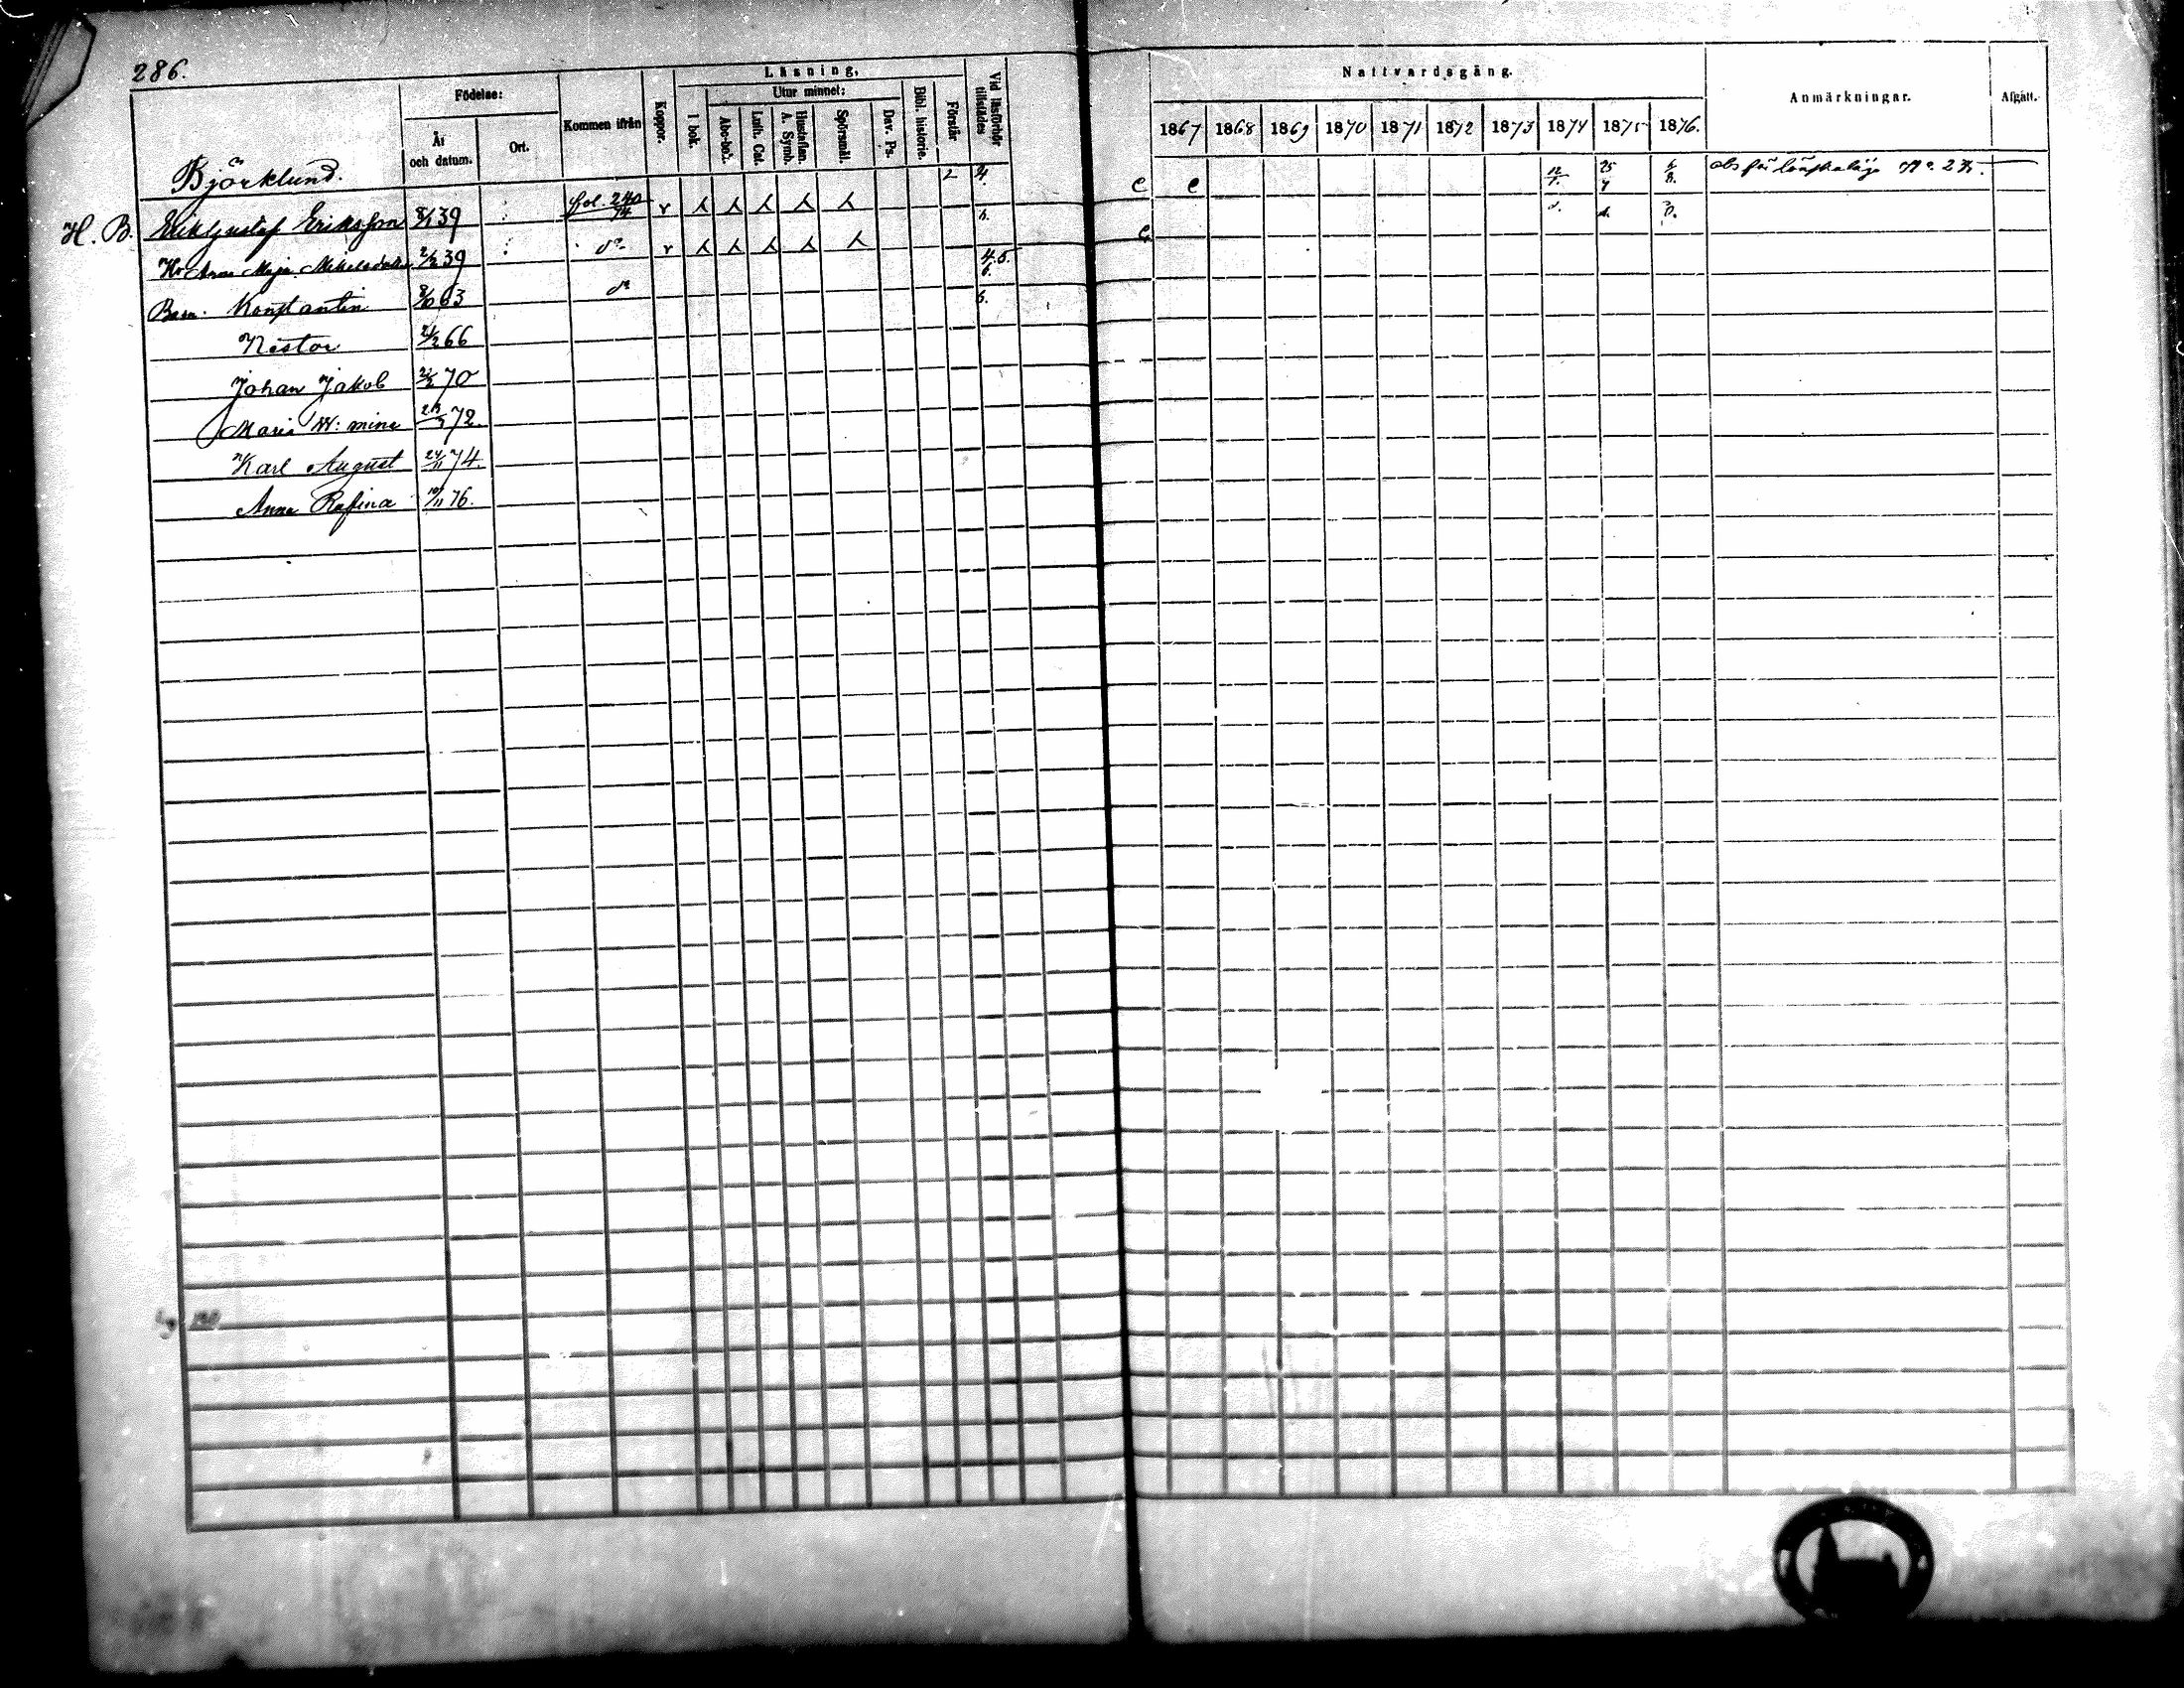 286.
Födelse:
Kommen ifrån
Koppor.
Läsning,
Utur minnet:
Vid läsförhör tillstädes
Nattvardsgång.
Anmärkningar.
Afgått.
År och datum.
Ort.
I bok.
Abc-bok.
Luth. Cat.
Hustaflan. A. Symb.
Spörsmål.
Dav. Ps.
Bibl. historie.
Förstår
1867 1868 1869 1870 1871 1872 1873 1874 1875 1876.
Björklund.
H. B. Erik Gustaf Eriksson 8/1 39 fol. 240/74 v 2 4. e e 12/7. 25/4 6/8.
Hu Anna Maja Mikelsdotter 2/2 39 do v 6. d. d. d.
Barn. Konstantin 8/10 63 do 4.5. 6.
Nestor 21/2 66 6.
Johan Jakob 70
Maria W:mina 72.
Karl August 24/11 74.
Anna Rosina 10/11 76.